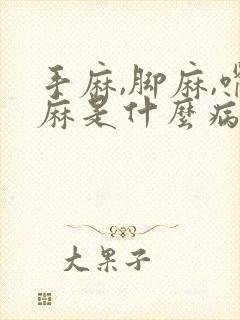 手麻,脚麻,嘴
麻是什麼病
大果子